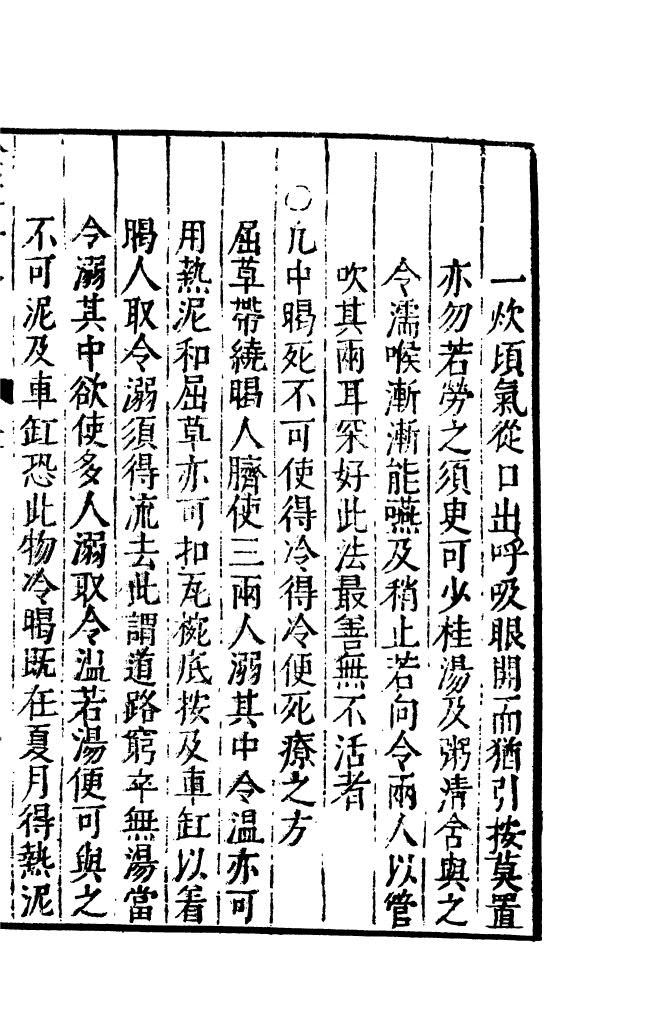 一炊頃氣從口出呼吸眼開而猶引按莫置
亦勿若勞之須臾可少桂湯及粥清含與之
令濡喉漸漸能嚥及稍止若向令兩人以管
吹其兩耳罙好此法最善無不活者
○凡中暍死不可使得冷得冷便死療之方
屈草帶繞暍人臍使三兩人溺其中令温亦可
用熱泥和屈草亦可扣瓦椀底按及車缸以着
暍人取令溺須得流去此謂道路窮卒無湯當
令溺其中欲使多人溺取令温若湯便可與之
不可泥及車缸恐此物冷暍既在夏月得熱泥